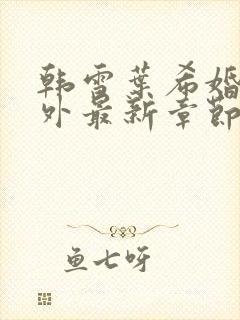 韩雪叶希婚
外最新章節
鱼七呀